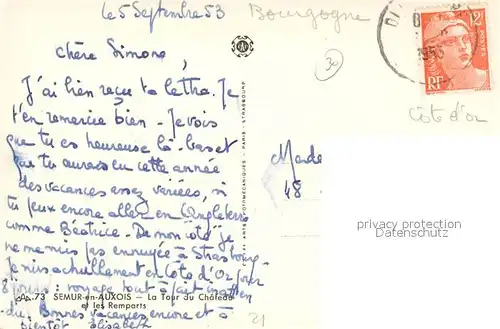 le 5 Septembre 53
Bourgogne
Chère Simone,
J'ai bien reçu ta lettre. Je
t'en remercie bien - Je vois
que tu es heureuse là-bas et
que tu auras eu cette année
des vacances assez variées, si
tu peux encore aller en Angleterre
comme Béatrice. De mon côté je
ne me suis pas ennuyée à Strasbourg
Je suis actuellement en Côte d'Or pour
8 jours : voyage tout à fait inatten-
du. Bonnes vacances encore et à
bientôt Elisabeth
73 SEMUR-en-AUXOIS - La Tour du Château
et les Remparts
PARIS STRASBOURG
30
1953
2F
POSTES
RF
Côte d'or
48
privacy protection
Datenschutz
21